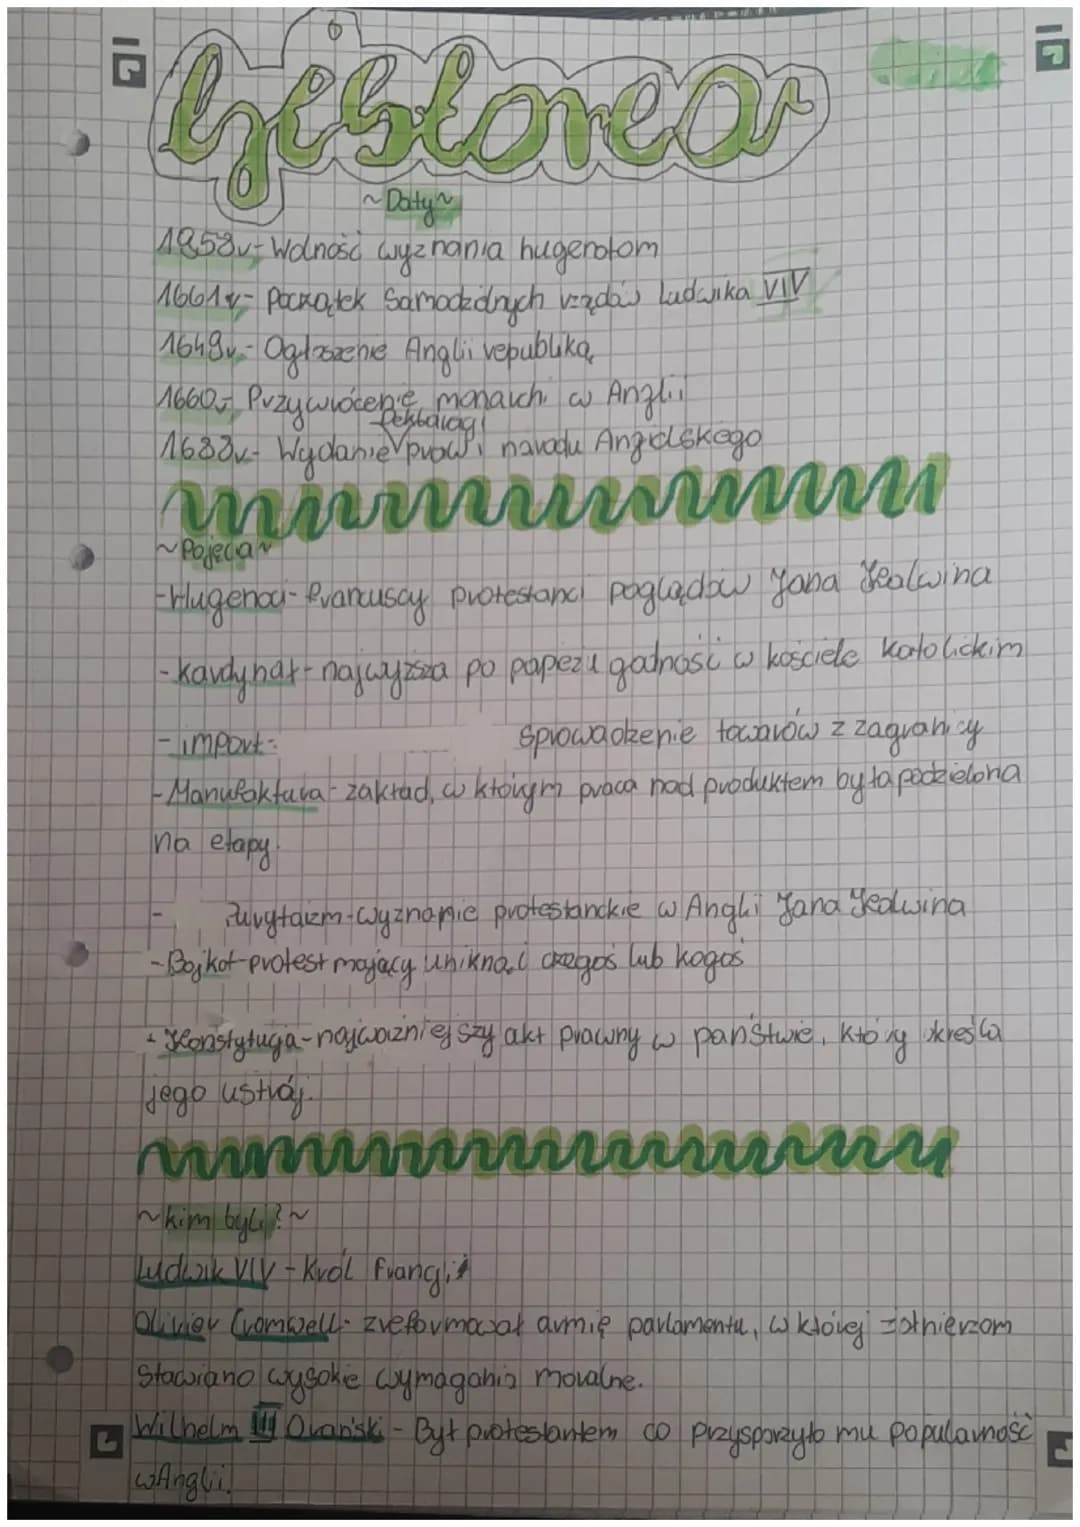 Historia
~Daty~
1958r- Wolność wyznania hugenotom
1661r- Początek Samodzielnych rządów Ludwika VIV
1649r.- Ogłoszenie Anglii republiką
1660r- Przywrócenie monarchi w Anglii
Deklaracji
1689r- Wydanie praw i narodu Angielskiego
~Pojęcia~
-Hugenoci- francuscy protestanci poglądów Jana Kalwina
- kardynał- najwyższa po papieżu godność w kościele katolickim
- import- sprowadzenie towarów z zagranicy
- Manufaktura- zakład, w którym praca nad produktem była podzielona
na etapy.
- Purytaizm-wyznanie protestanckie w Angli Jana Kalwina
-Bojkot-protest mający uniknąć czegoś lub kogoś
- Konstytucja-najważniejszy akt prawny w państwie, który określa
jego ustrój.
~kim byli?~
Ludwik VIV - Król Francji
Olivier Cromwell- zreformował armię parlamentu, w której żołnierzom
Stawiano wysokie wymagania moralne.
Wilhelm III Orański - Był protestantem co przysporzyło mu popularność
w Anglii.